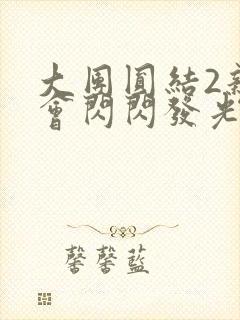 大團圓結2新
會閃閃發光
馨馨藍